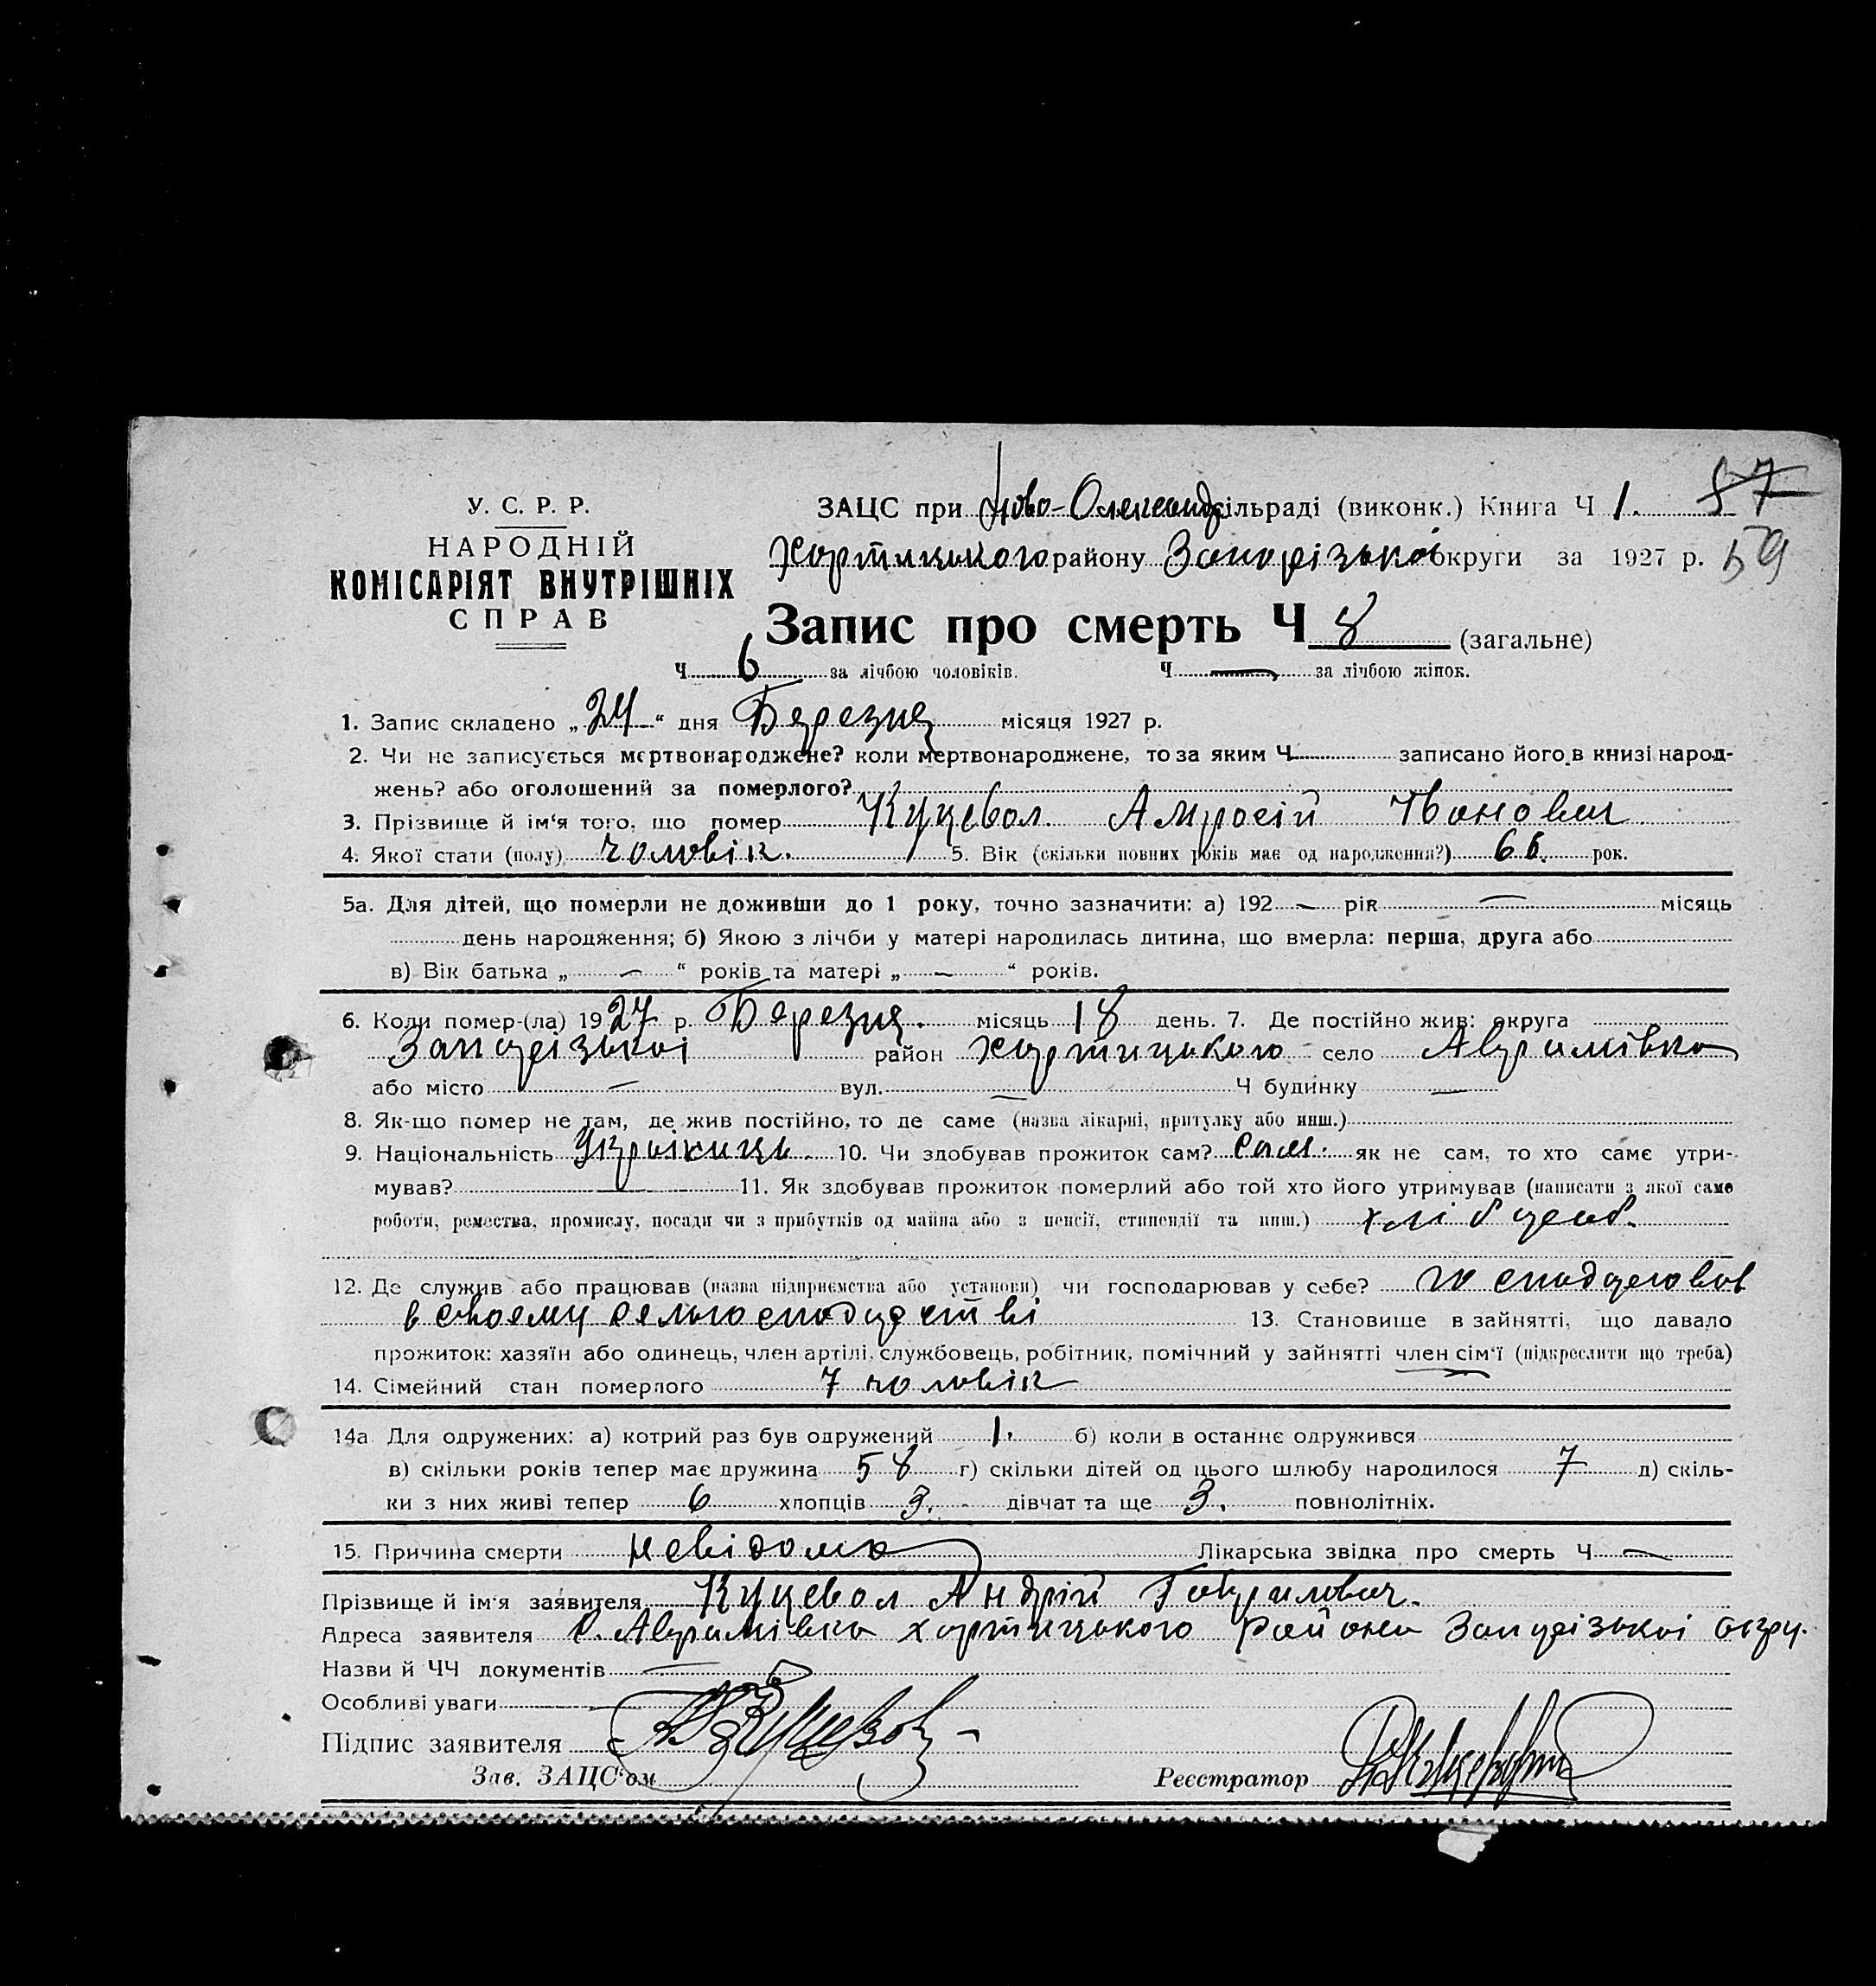 У. С. Р. Р.
НАРОДНІЙ
КОМІСАРІЯТ ВНУТРІШНІХ
СПРАВ
ЗАЦС при Ново-Олександр сільраді (виконк.) Книга Ч 1. 57
Хортицького району Запорізької округи за 1927 р. 59
Запис про смерть Ч 8 (загальне)
Ч 6 за лічбою чоловіків. Ч — за лічбою жінок.
1. Запис складено „24“ дня Березня місяця 1927 р.
2. Чи не записується мертвонароджене? коли мертвонароджене, то за яким Ч записано його в книзі народ-
жень? або оголошений за померлого?
3. Прізвище й ім‘я того, що помер Куцевол Амросій Іванович
4. Якої стати (полу) чоловік. 5. Вік (скільки повних років має од народження?) 66. рок.
5а. Для дітей, що померли не доживши до 1 року, точно зазначити: а) 192 — рік — місяць
день народження; б) Якою з лічби у матері народилась дитина, що вмерла: перша, друга або
в) Вік батька „ — “ років та матері „ — “ років.
6. Коли помер-(ла) 1927 р. Березня. місяць 18 день. 7. Де постійно жив: округа
Запорізької район Хортицького село Аврамівка
або місто — вул. — Ч будинку —
8. Як-що помер не там, де жив постійно, то де саме (назва лікарні, притулку або инш.)
9. Національність Українць. 10. Чи здобував прожиток сам? сам. як не сам, то хто саме утри-
мував? — 11. Як здобував прожиток померлий або той хто його утримував (написати з якої саме
роботи, ремества, промислу, посади чи з прибутків од майна або з пенсії, стипендії та инш.) хлібороб.
12. Де служив або працював (назва підприємства або установи) чи господарював у себе? господарював
в своєму сельгосподарстві 13. Становище в зайнятті, що давало
прожиток: хазяїн або одинець, член артілі, службовець, робітник, помічний у зайнятті член сім‘ї (підкреслити що треба)
14. Сімейний стан померлого 7 чоловік
14а Для одружених: а) котрий раз був одружений 1. б) коли в останнє одружився
в) скільки років тепер має дружина 58 г) скільки дітей од цього шлюбу народилося 7 д) скіль-
ки з них живі тепер 6 хлопців 3. дівчат та ще 3. повнолітніх.
15. Причина смерти невідома Лікарська звідка про смерть Ч —
Прізвище й ім‘я заявителя Куцевол Андрій Гаврилович.
Адреса заявителя с. Аврамівка Хортицького Району Запорізької окру.
Назви й ЧЧ документів —
Особливі уваги —
Підпис заявителя
Зав. ЗАЦС‘ом Реєстратор